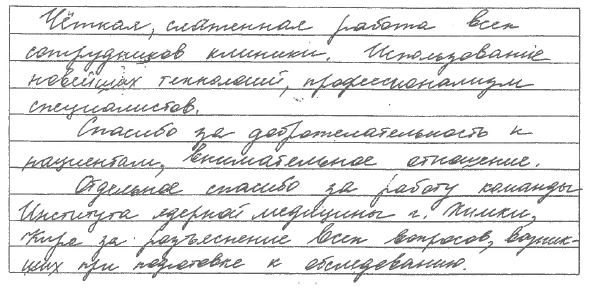 Чёткая, слаженная работа всех
сотрудников клиники. Использование
новейших технологий, профессионализм
специалистов.
Спасибо за доброжелательность к
пациентам, внимательное отношение.
Отдельное спасибо за работу команды
Института ядерной медицины г. Химки,
Кире за разъяснение всех вопросов, возник-
ших при подготовке к обследованию.